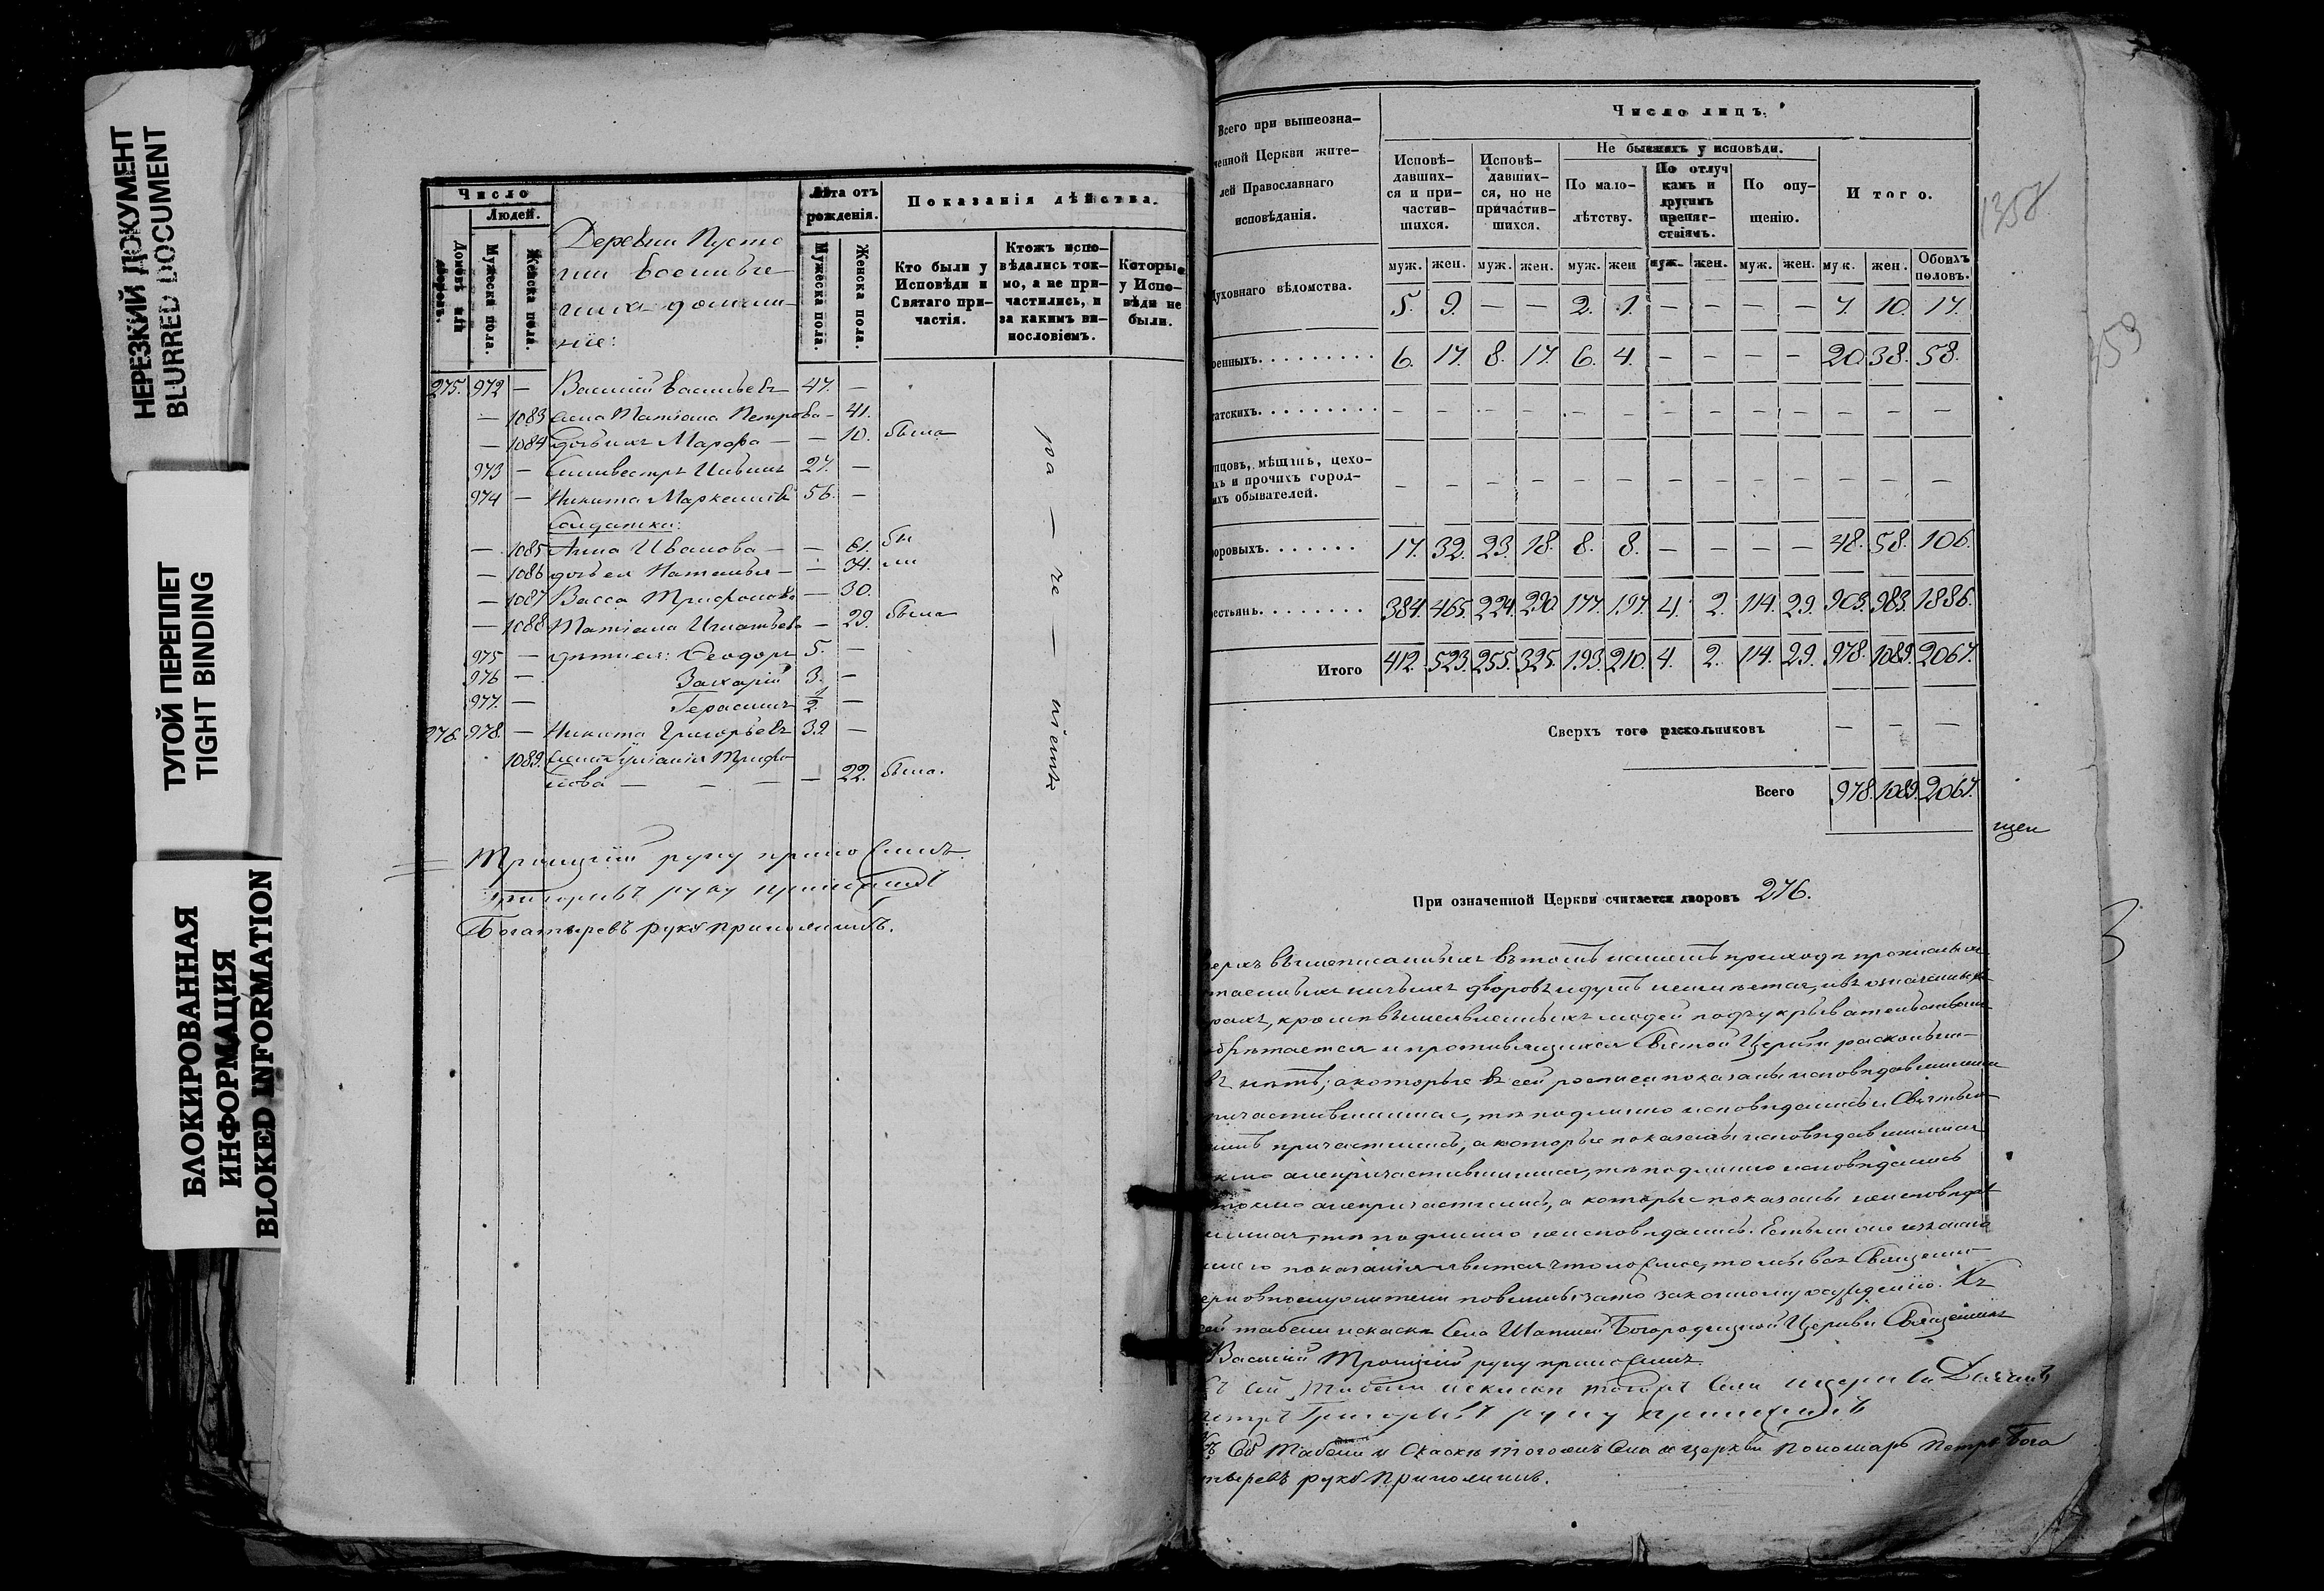 НЕРЕЗКИЙ ДОКУМЕНТ
BLURRED DOCUMENT
ТУГОЙ ПЕРЕПЛЕТ
TIGHT BINDING
БЛОКИРОВАННАЯ
ИНФОРМАЦИЯ
BLOKED INFORMATION
Число
Людей.
Домовъ или дворовъ.
Мужеска пола.
Женска пола.
Деревни Пусто
ши
домаш
ніе:
Лѣта отъ
рожденія.
Мужеска пола.
Женска пола.
Показанія дѣйства.
Кто были у
Исповѣди и
Святаго при-
частія.
Ктожъ испо-
вѣдались ток-
мо, а не при-
частились, и
за какимъ ви-
нословіемъ.
Которые
у Испо-
вѣди не
были.
275. 972 — Василій Васильевъ 47. —
— 1083 жена Татіана Петрова — 41.
— 1084 дочь ихъ Марфа — — 10. была
973 — Силивестръ 27. —
974 — Никита 56. —
Солдатки:
— 1085 Анна Иванова — — 61. бы
— 1086 дочь ея Наталья — — 34. ли
— 1087 Васса Трифонова — 30.
— 1088 Татіана Игнатьева — 29. была
975 — дѣти ея: Ѳеодоръ 5. —
976 — Захарій 3. —
977. — Герасимъ 1/2 —
276. 978. — Никита Григорьевъ 32 —
1089. жена Трифо
нова — — — — 22. была.
ра — че — ніемъ
Троицкій руку приложилъ.
Григорьевъ руку приложилъ
Богатыревъ руку приложилъ.
Всего при вышеозна-
ченной Церкви жите-
лей Православнаго
исповѣданія.
Число лицъ.
Исповѣ-
давших-
ся и при-
частив-
шихся.
Исповѣ-
давших-
ся, но не
причастив-
шихся.
Не бывшихъ у исповѣди.
По мало-
лѣтству.
По отлуч
камъ и
другимъ
препят-
ствіямъ.
По опу-
щенію.
Итого.
муж. жен. муж. жен. муж. жен муж. жен. муж. жен. муж. жен. Обоихъ половъ.
Духовнаго вѣдомства. 5. 9. — — 2. 1. — — — — 7. 10. 17.
оенныхъ. 6. 17. 8. 17. 6. 4. — — — — 20. 38. 58.
татскихъ. — — — — — — — — — — — — —
упцовъ, мѣщанъ, цехо-
ыхъ и прочихъ город-
ихъ обывателей. — — — — — — — — — — — — —
воровыхъ. 17. 32. 23. 18. 8. 8. — — — — 48. 58. 106.
рестьянъ. 384. 465. 224. 290. 177. 197. 4. 2. 114. 29. 903. 983. 1886.
Итого 412. 523. 255. 325. 193. 210. 4. 2. 114. 29. 978. 1089. 2067.
Сверхъ того раскольниковъ — — —
Всего 978. 1089. 2067.
При означенной Церкви считается дворовъ 276.
верхъ вышеписанныхъ въ томъ нашемъ приходѣ
дворовъ и другъ
кромѣ вышеявленныхъ людей
обрѣтается и противящихся Святой Церкви раскольни-
въ нѣтъ; а которые въ сей росписи показаны исповѣдавшимися
причастившимися, тѣ подлинно исповѣдались и Святыхъ
причастились, а которые показаны исповѣдавшимися
а непричастившимися, тѣ подлинно исповѣдались
токмо а непричастились, а которые показаны неисповѣдав
шимися, тѣ подлинно неисповѣдались. Естьли же
показанія явится что ложное, то мы всѣ Священно
законному осужденію. Къ
сей табели и сказкѣ Села Богородицкой Церкви Священникъ
Василій Троицкій руку приложилъ.
Къ сей Табели и сказкѣ тогожъ Села церкви
Петръ Григорьевъ руку приложилъ
Къ Сей Табели и Сказкѣ тогожъ Села и церкви Пономарь Петръ Бога
тыревъ руку Приложилъ.
1358
353